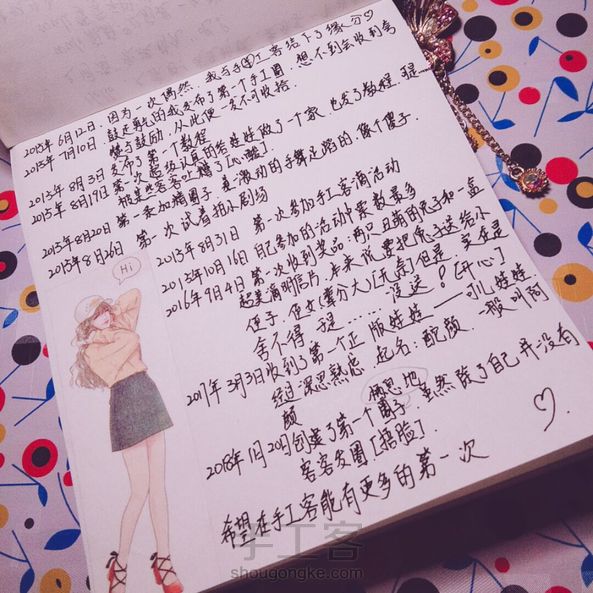 2015年6月12日.因为一次偶然.我与手工客结下了缘分♡
2015年7月10日.鼓足勇气的我发布了第一个手工圈.想不到会收到夸
赞与鼓励.从此便一发不可收拾.
2015年8月3日 发布了第一个教程
2015年8月19日 第一次超级认真的给娃娃做了一个家.也发了教程.可是
都是些客客吐槽了[心酸].
2015年8月20日 第一次加精圈子.是激动的手舞足蹈的像个傻子.
2015年8月26日 第一次试着拍小剧场
2015年8月31日 第一次参加手工客滴活动
2015年10月16日 自己参加的活动中票数最多
2016年9月4日 第一次收到奖品.两只丑萌的兔子和一盒
超美滴明信片.本来说要把兔子送给小
侄子.侄女(零分大)[无奈]但是.实在是
舍不得 诶……没送![开心]
2017年3月3日收到了第一个正版娃娃——叽儿娃娃
经过深思熟虑.起名:酡颜.一般叫阿
颜
2018年1月20日创建了第一个圈子.虽然除了自己并没有
客客发圈[捂脸].
希望在手工客能有更多的第一次
♡.
Hi
手工客
shougongke.com